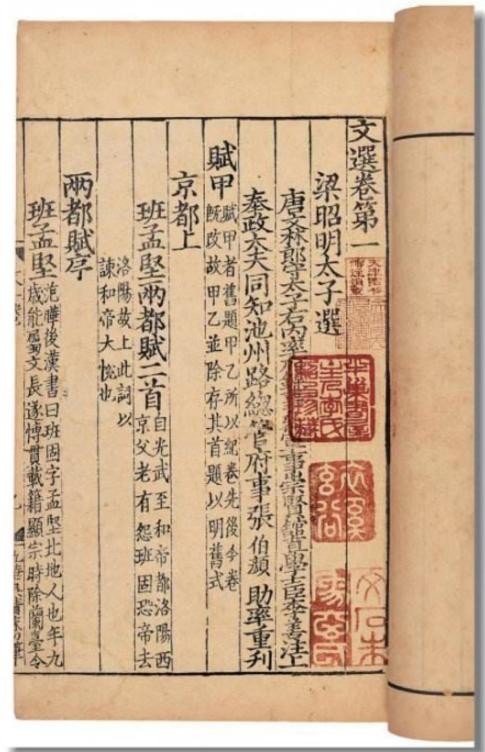 文選卷第一
梁昭明太子選
唐文林郎守太子右内率府事崇賢館直學士臣李善注上
奉政大夫同知池州路總管府事張伯顏助率重刊
賦甲
賦甲者舊題甲乙所以紀卷先後今卷
旣改故甲乙並除存其首題以明舊式
京都上
班孟堅兩都賦二首
自光武至和帝都洛陽西
京父老有怨班固恐帝去
洛陽故上此詞以
諫和帝大悅也
兩都賦序
班孟堅
范曄後漢書曰班固字孟堅北地人也年九
歲能屬文長遂博貫載籍顯宗時除蘭臺令